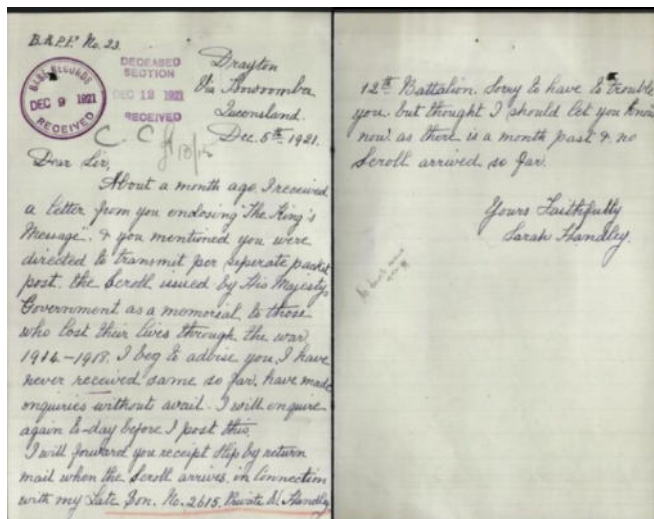 B.R.P.F. No. 23.
BASE RECORDS
DEC 9 1921
RECEIVED
DECEASED
SECTION
DEC 12 1921
RECEIVED
Drayton
Via Toowoomba
Queensland.
Dec. 5th 1921.
Dear Sir,
About a month ago, I received
a letter from you enclosing "The King's
Message". & you mentioned you were
directed to transmit per seperate packet
post. the Scroll issued by His Majestys
Government as a memorial to those
who lost their lives through the war
1914-1918. I beg to advise you, I have
never received same so far, have made
enquiries without avail. I will enquire
again to-day before I post this.
I will forward you receipt slip by return
mail when the Scroll arrives, in Connection
with my Late Son. No. 2615. Private Handley
12th Battalion. Sorry to have to trouble
you. but thought I should let you know
now as there is a month past & no
Scroll arrived so far.
Yours Faithfully
Sarah Handley.